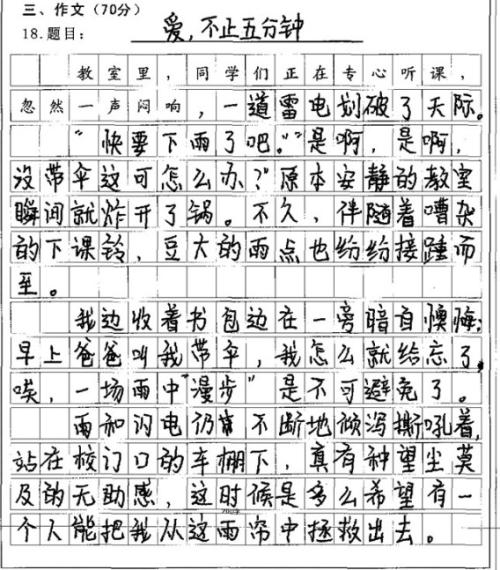 三、作文（70分）
18.题目：爱,不止五分钟
教室里，同学们正在专心听课，
忽然一声闷响，一道雷电划破了天际。
“快要下雨了吧。”“是啊，是啊，
没带伞这可怎么办？”原本安静的教室
瞬间就炸开了锅。不久，伴随着嘈杂
的下课铃，豆大的雨点也纷纷接踵而
至。
我边收着书包边在一旁暗自懊悔：
早上爸爸叫我带伞，我怎么就给忘了，
唉，一场雨中“漫步”是不可避免了。
雨和闪电仍常不断地倾泻撕吼着，
站在校门口的车棚下，真有种望尘莫
及的无助感，这时候是多么希望有一
个人能把我从这雨帘中拯救出去。